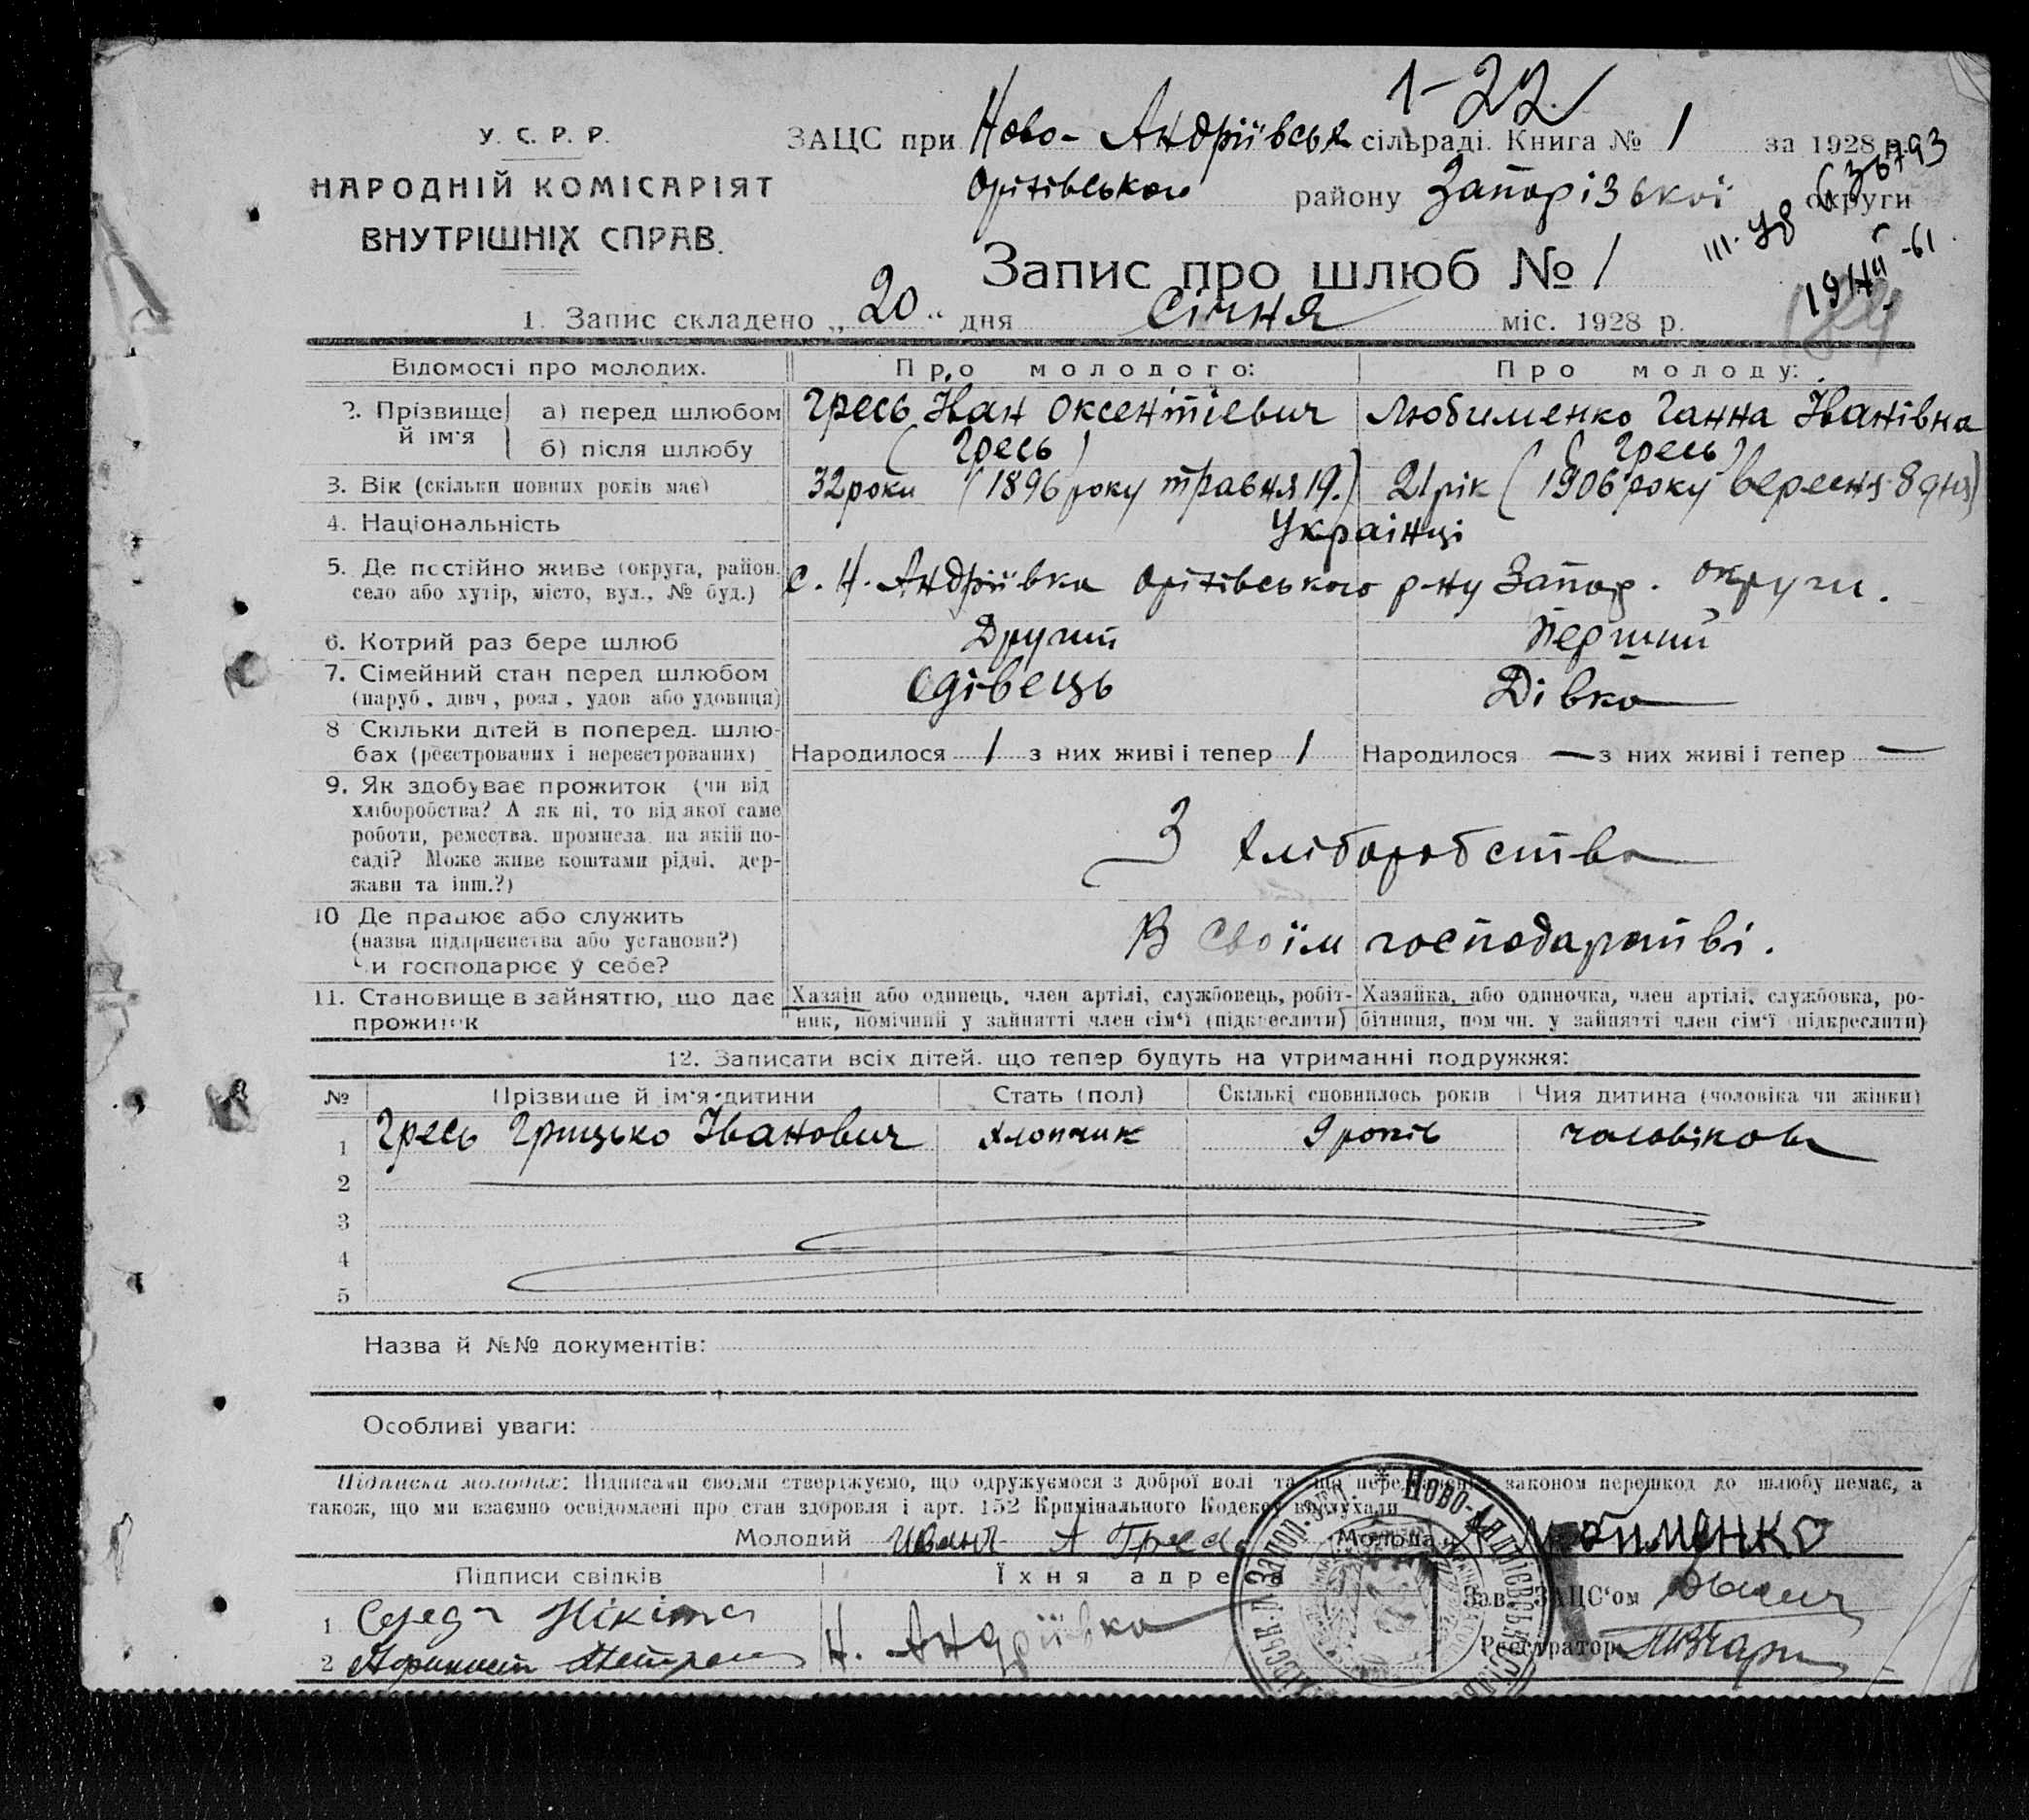 1-22
У. С. Р. Р.
НАРОДНІЙ КОМІСАРІЯТ
ВНУТРІШНІХ СПРАВ.
ЗАЦС при Ново-Андріївськ сільраді. Книга № 1 за 1928 р.
Оріхівського району Запорізької округи
Запис про шлюб № 1
1. Запис складено „20“ дня Січня міс. 1928 р.
Відомості про молодих. Про молодого: Про молоду:
2. Прізвище й ім'я а) перед шлюбом Гресь Іван Оксентієвич Любименко Ганна Іванівна
б) після шлюбу (Гресь) (Гресь)
3. Вік (скільки повних років має) 32 роки (1896 року травня 19.) 21 рік (1906 року вересня 8 дня)
4. Національність Українці
5. Де постійно живе (округа, район, село або хутір, місто, вул., № буд.) С. Н. Андріївка Оріхівського р-ну Запор. округи.
6. Котрий раз бере шлюб Другий Перший
7. Сімейний стан перед шлюбом (паруб., дівч., розл., удов. або удовиця) Вдівець Дівка
8 Скільки дітей в поперед. шлюбах (реєстрованих і нереєстрованих) Народилося 1 з них живі і тепер 1 Народилося — з них живі і тепер —
9. Як здобуває прожиток (чи від
хліборобства? А як ні, то від якої саме
роботи, ремества, промисла, на якій по-
саді? Може живе коштами рідні, дер-
жави та інш.?)
З хліборобства
10 Де працює або служить
(назва підприємства або установи?)
Чи господарює у себе?
В своїм господарстві.
11. Становище в зайняттю, що дає прожиток
Хазяїн або одинець, член артілі, службовець, робіт-
ник, помічний у зайнятті член сім'ї (підкреслити)
Хазяйка, або одиночка, член артілі, службовка, ро-
бітниця, помічн. у зайнятті член сім'ї (підкреслити)
12. Записати всіх дітей, що тепер будуть на утриманні подружжя:
№ Прізвище й ім'я дитини Стать (пол) Скількі сповнилось років Чия дитина (чоловіка чи жінки)
1 Гресь Грицько Іванович хлопчик 9 років чоловікова
2
3
4
5
Назва й №№ документів:
Особливі уваги:
Підписка молодих: Підписами своїми стверджуємо, що одружуємося з доброї волі та що законом перешкод до шлюбу немає, а
також, що ми взаємно освідомлені про стан здоровля і арт. 152 Кримінального Кодексу вислухали
Молодий Иван А Гресь Молода Любименко
Підписи свідків Їхня адреса
Зав. ЗАЦС'ом
1 Середа Нікіта Н. Андріївка
Реєстратор
2